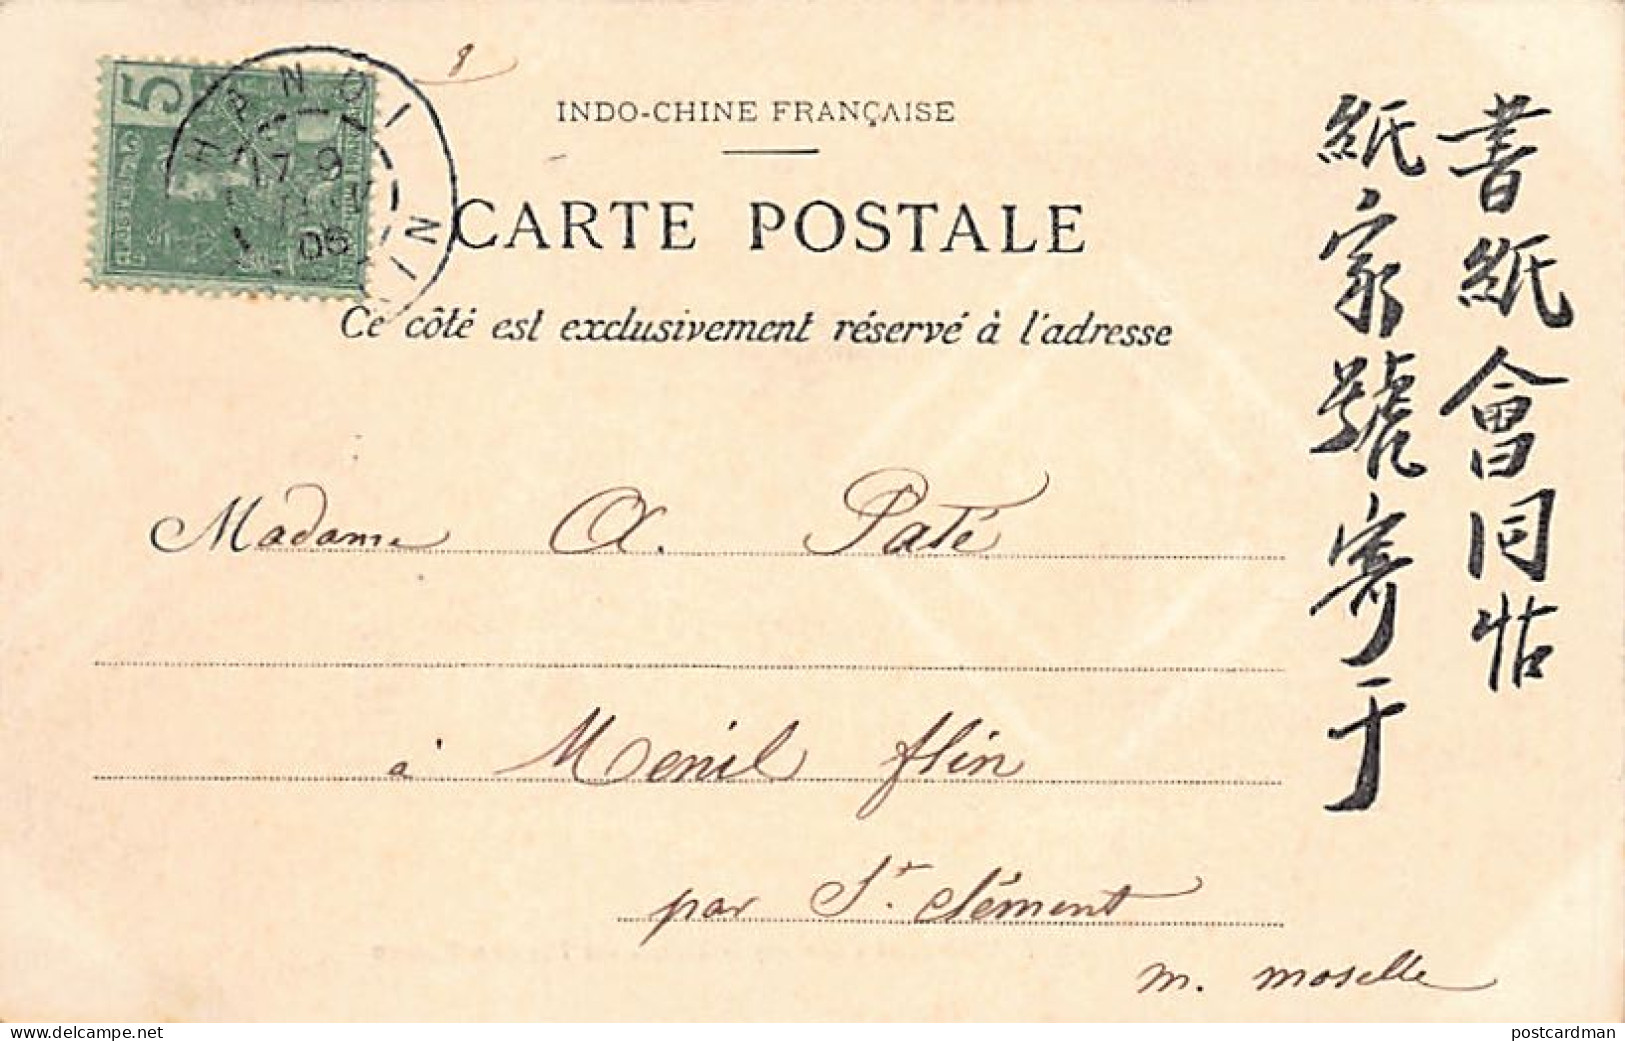 5
HANOI
17 9
05
8
INDO-CHINE FRANÇAISE
CARTE POSTALE
Ce côté est exclusivement réservé à l'adresse
書紙會同帖
紙家號寄于
Madame A. Paté
à Menil flin
par St. Clément
m. moselle
postcardman